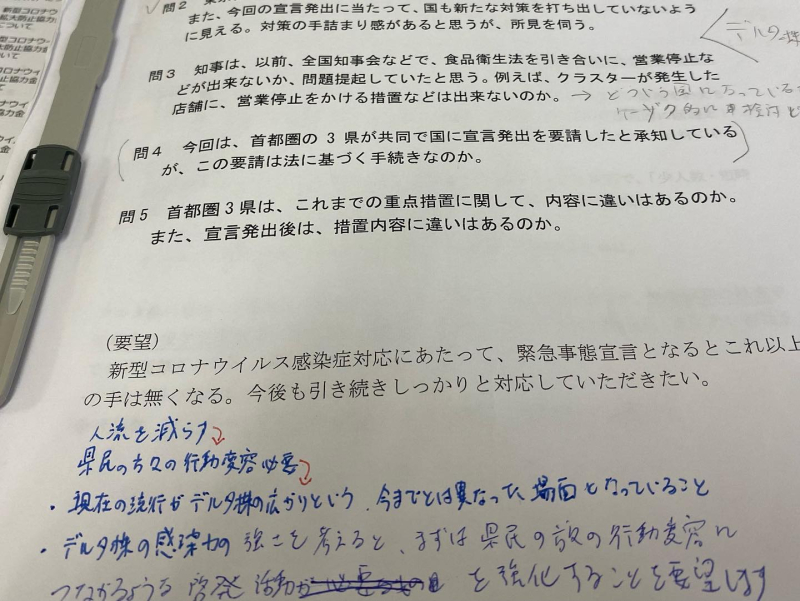 新型コロナウ
拡大防止協力金
について
新型コロナウ
大防止協力金
いて
コロナウイ
止協力金
問2
また、今回の宣言発出に当たって、国も新たな対策を打ち出していないよう
に見える。対策の手詰まり感があると思うが、所見を伺う。
デルタ株
問3 知事は、以前、全国知事会などで、食品衛生法を引き合いに、営業停止な
どが出来ないか、問題提起していたと思う。例えば、クラスターが発生した
店舗に、営業停止をかける措置などは出来ないのか。→
問4 今回は、首都圏の3県が共同で国に宣言発出を要請したと承知している
が、この要請は法に基づく手続きなのか。
問5 首都圏3県は、これまでの重点措置に関して、内容に違いはあるのか。
また、宣言発出後は、措置内容に違いはあるのか。
(要望)
新型コロナウイルス感染症対応にあたって、緊急事態宣言となるとこれ以上
の手は無くなる。今後も引き続きしっかりと対応していただきたい。
人流を減らす
県民の方々の行動変容必要
・現在の流行がデルタ株の広がりという、今までとは異なった場面となっていること
・デルタ株の感染力の強さを考えると、まずは県民の方の行動変容に
つながるような啓発活動 を強化することを要望します